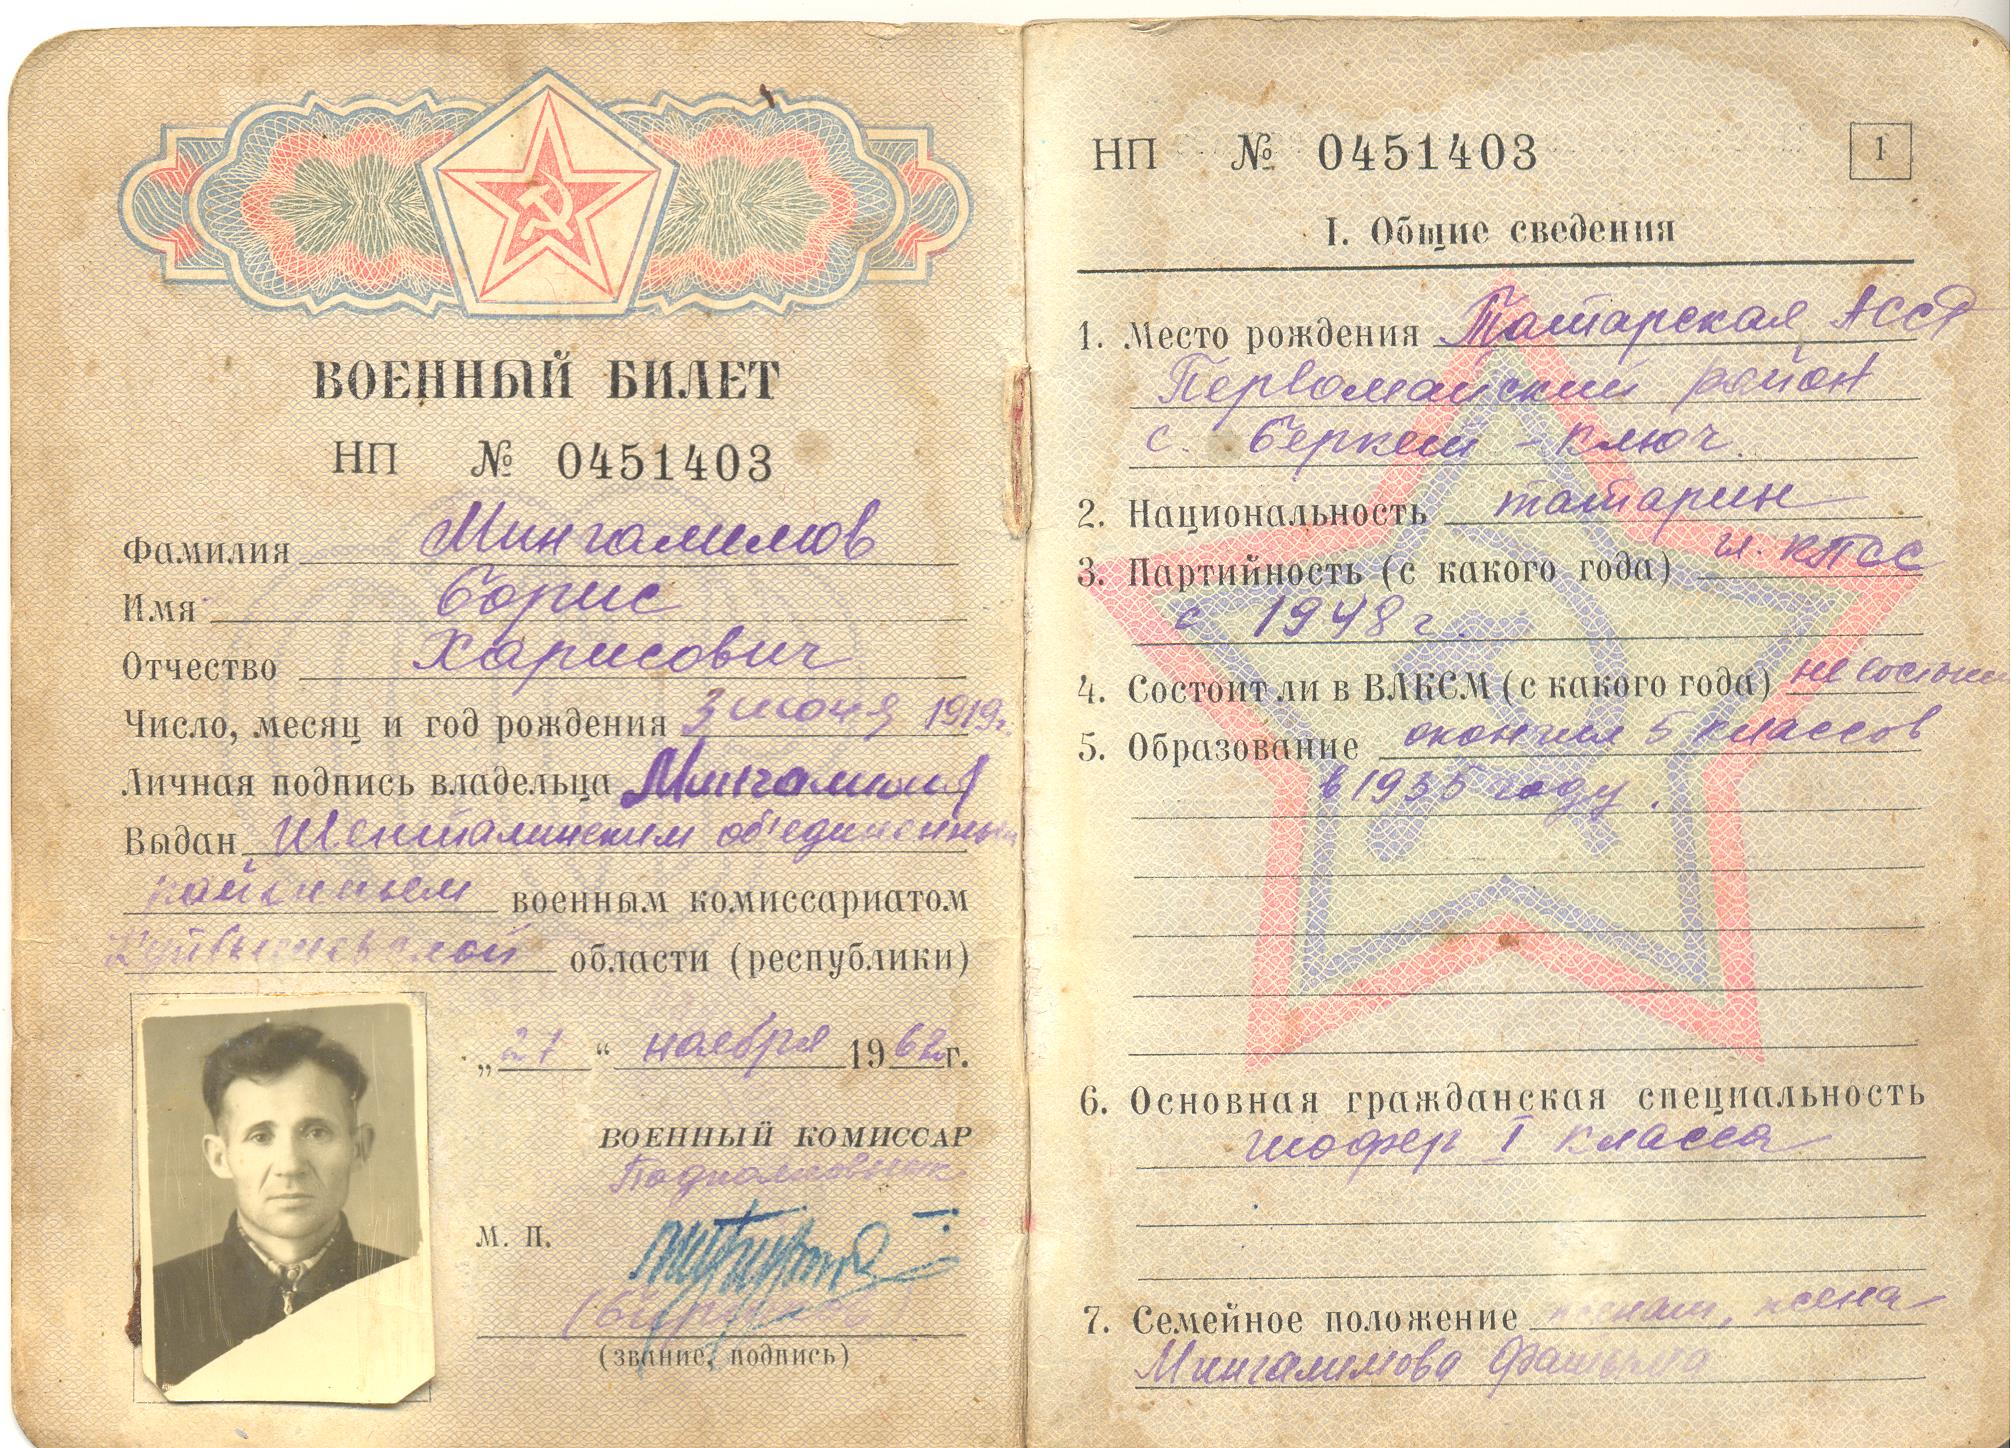 ВОЕННЫЙ БИЛЕТ
НП № 0451403
Фамилия Мингалимов
Имя Борис
Отчество Харисович
Число, месяц и год рождения 3 июня 1919г.
Личная подпись владельца Мингалимов
Выдан Шенталинским объединенным
районным военным комиссариатом
Куйбышевской области (республики)
„27“ ноября 1962г.
ВОЕННЫЙ КОМИССАР
Подполковник
М. П.
(звание, подпись)
НП № 0451403
1
I. Общие сведения
1. Место рождения Татарская АССР
Первомайский район
с. Беркет-Ключ.
2. Национальность татарин
3. Партийность (с какого года) чл. КПСС
с 1948 г.
4. Состоит ли в ВЛКСМ (с какого года) не состоит
5. Образование окончил 5 классов
в 1935 году.
6. Основная гражданская специальность
шофер I класса
7. Семейное положение женат, жена
Мингалимова Фатыма